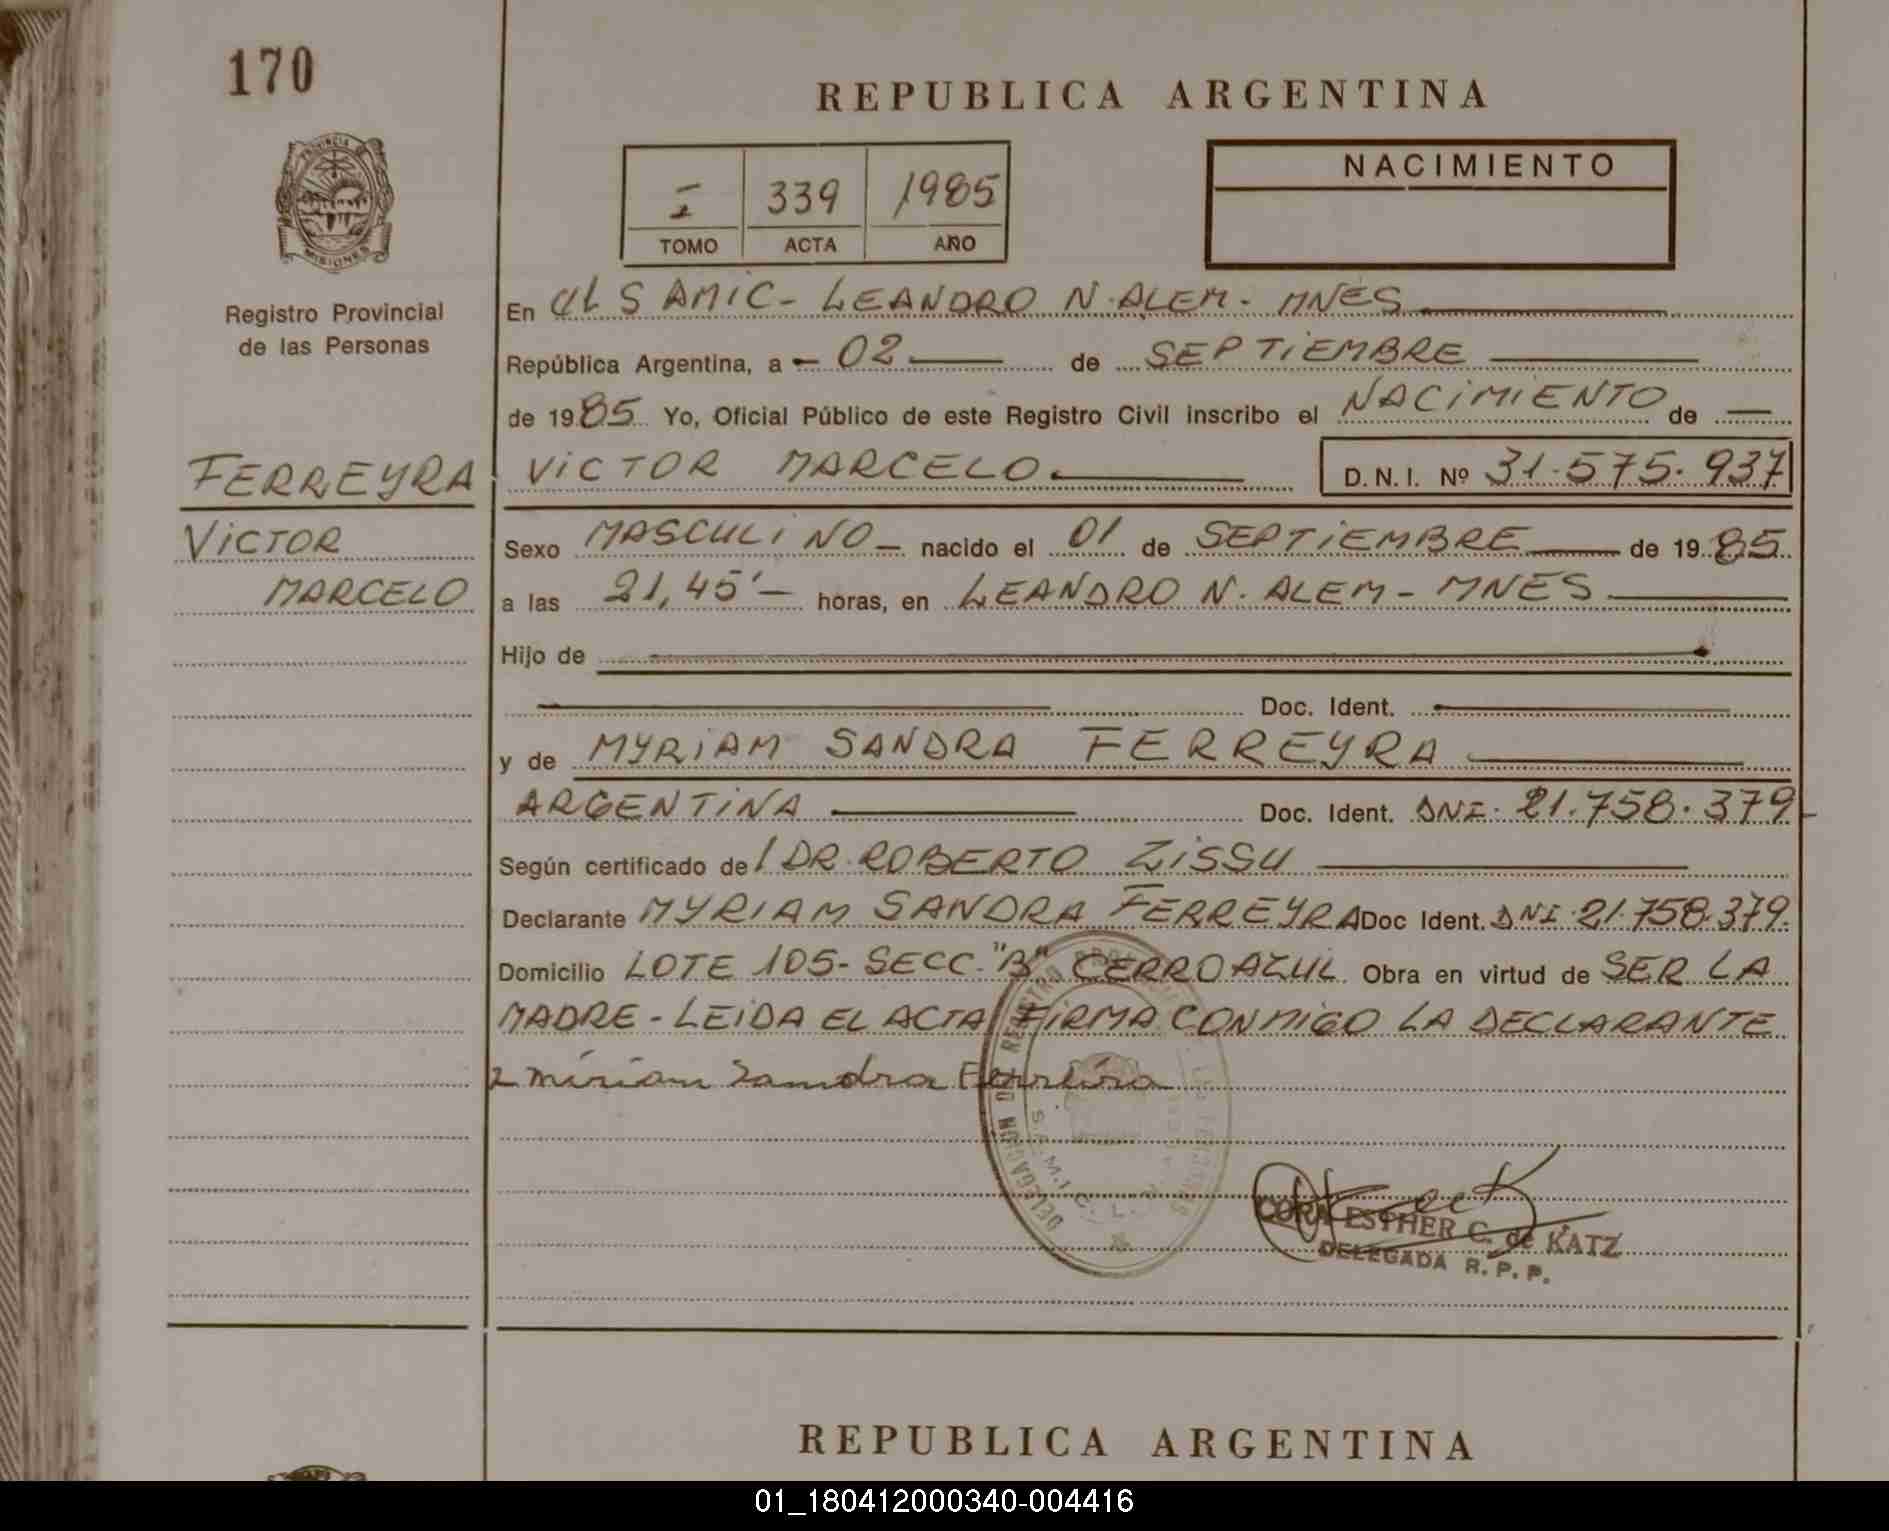 170
REPUBLICA ARGENTINA
PROVINCIA DE
MISIONES
Registro Provincial
de las Personas
I 339 1985
TOMO ACTA AÑO
NACIMIENTO
En S AMIC - LEANDRO N. ALEM - MNES
República Argentina, a - 02 de SEPTIEMBRE
de 1985 Yo, Oficial Público de este Registro Civil inscribo el NACIMIENTO de
FERREYRA VICTOR MARCELO D.N.I. Nº 31.575.937
VICTOR
MARCELO
Sexo MASCULINO - nacido el 01 de SEPTIEMBRE de 1985
a las 21,45' - horas, en LEANDRO N. ALEM - MNES
Hijo de
Doc. Ident.
y de MYRIAM SANDRA FERREYRA
ARGENTINA Doc. Ident. DNI. 21.758.379
Según certificado del DR. ROBERTO ZISSU
Declarante MYRIAM SANDRA FERREYRA Doc Ident. DNI 21.758.379.
Domicilio LOTE 105 - SECC. "B" CERRO AZUL Obra en virtud de SER LA
MADRE - LEIDA EL ACTA FIRMA CONMIGO LA DECLARANTE
Mirian Sandra Ferreira
DELEGACION DE REGISTRO
CORA ESTHER C. de KATZ
DELEGADA R. P. P.
REPUBLICA ARGENTINA
01_180412000340-004416